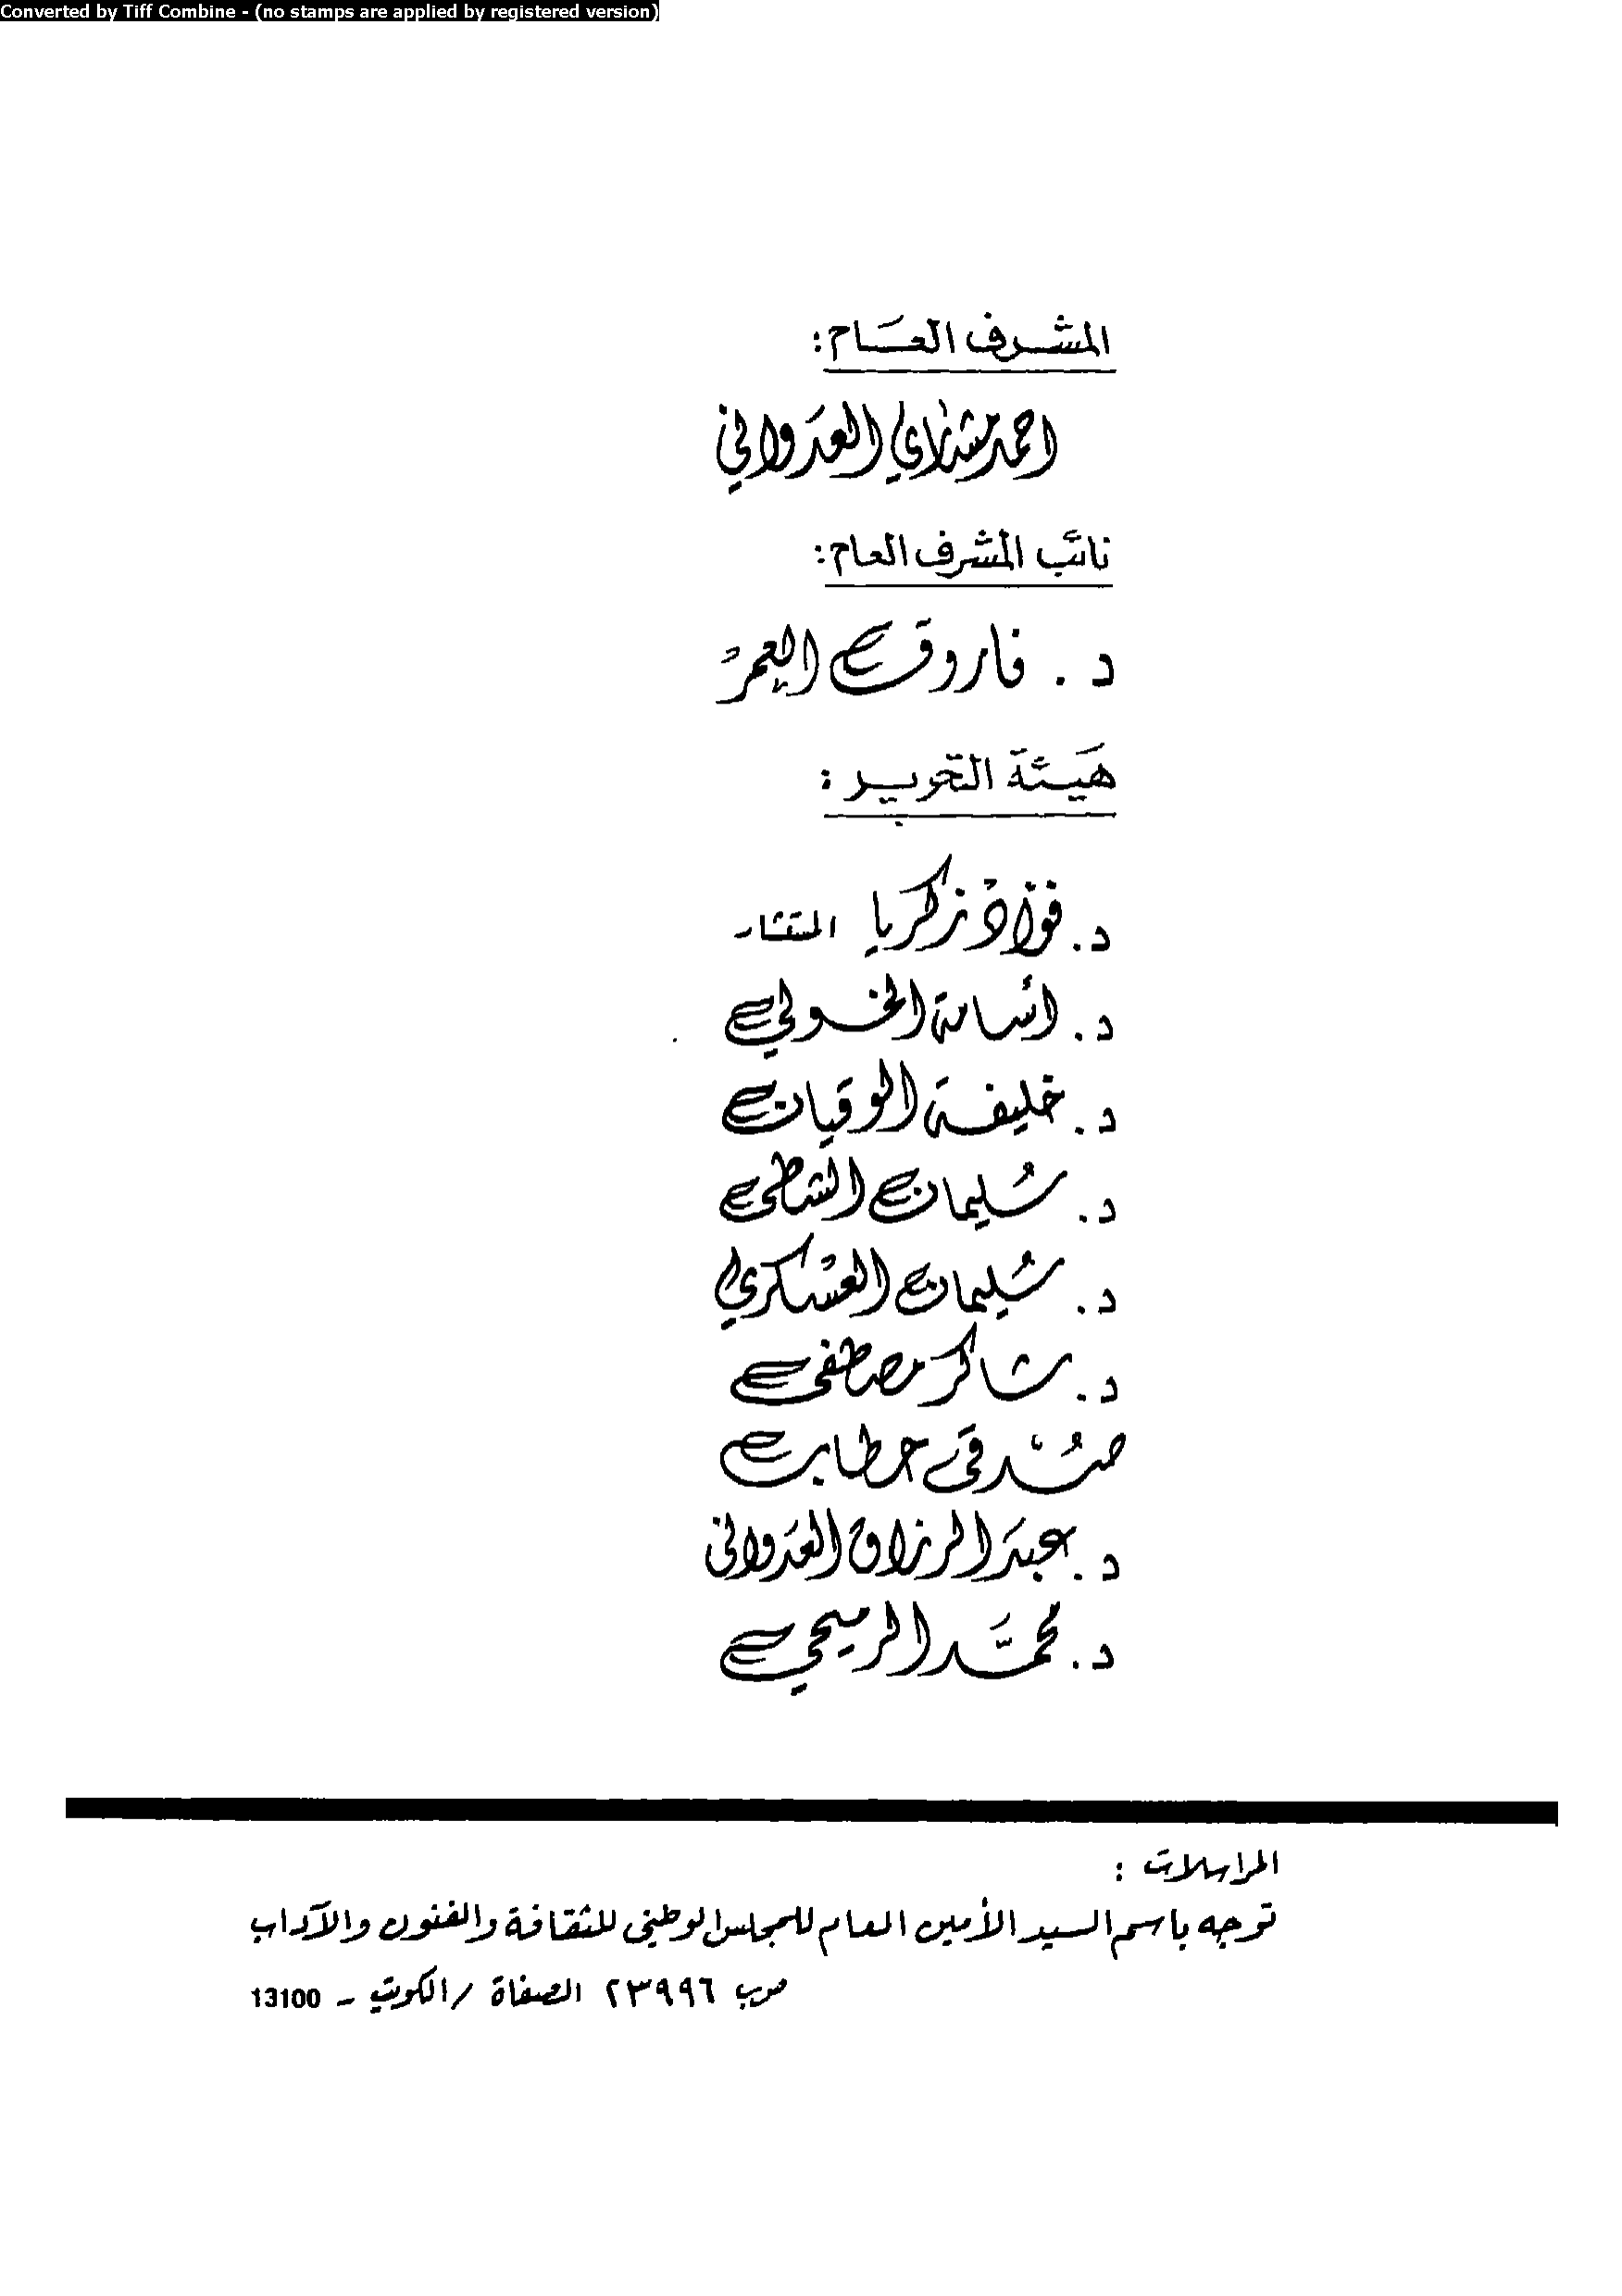 Converted by Tiff Combine - (no stamps are applied by registered version)
المشرف العام:
احمد مشاري العدواني
نائب المشرف العام:
د. فاروق العمر
هيئة التحرير:
د. فؤاد زكريا المستشار
د. أسامة الخولي
د. خليفة الوقيان
د. سليمان الشطي
د. سليمان العسكري
د. شاكر مصطفى
صدقي حطاب
د. عبد الرزاق العدواني
د. محمد الرميحي
المراسلات :
توجه باسم السيد الأمين العام للمجلس الوطني للثقافة والفنون والآداب
ص.ب ٢٣٩٩٦ الصفاة / الكويت - 13100